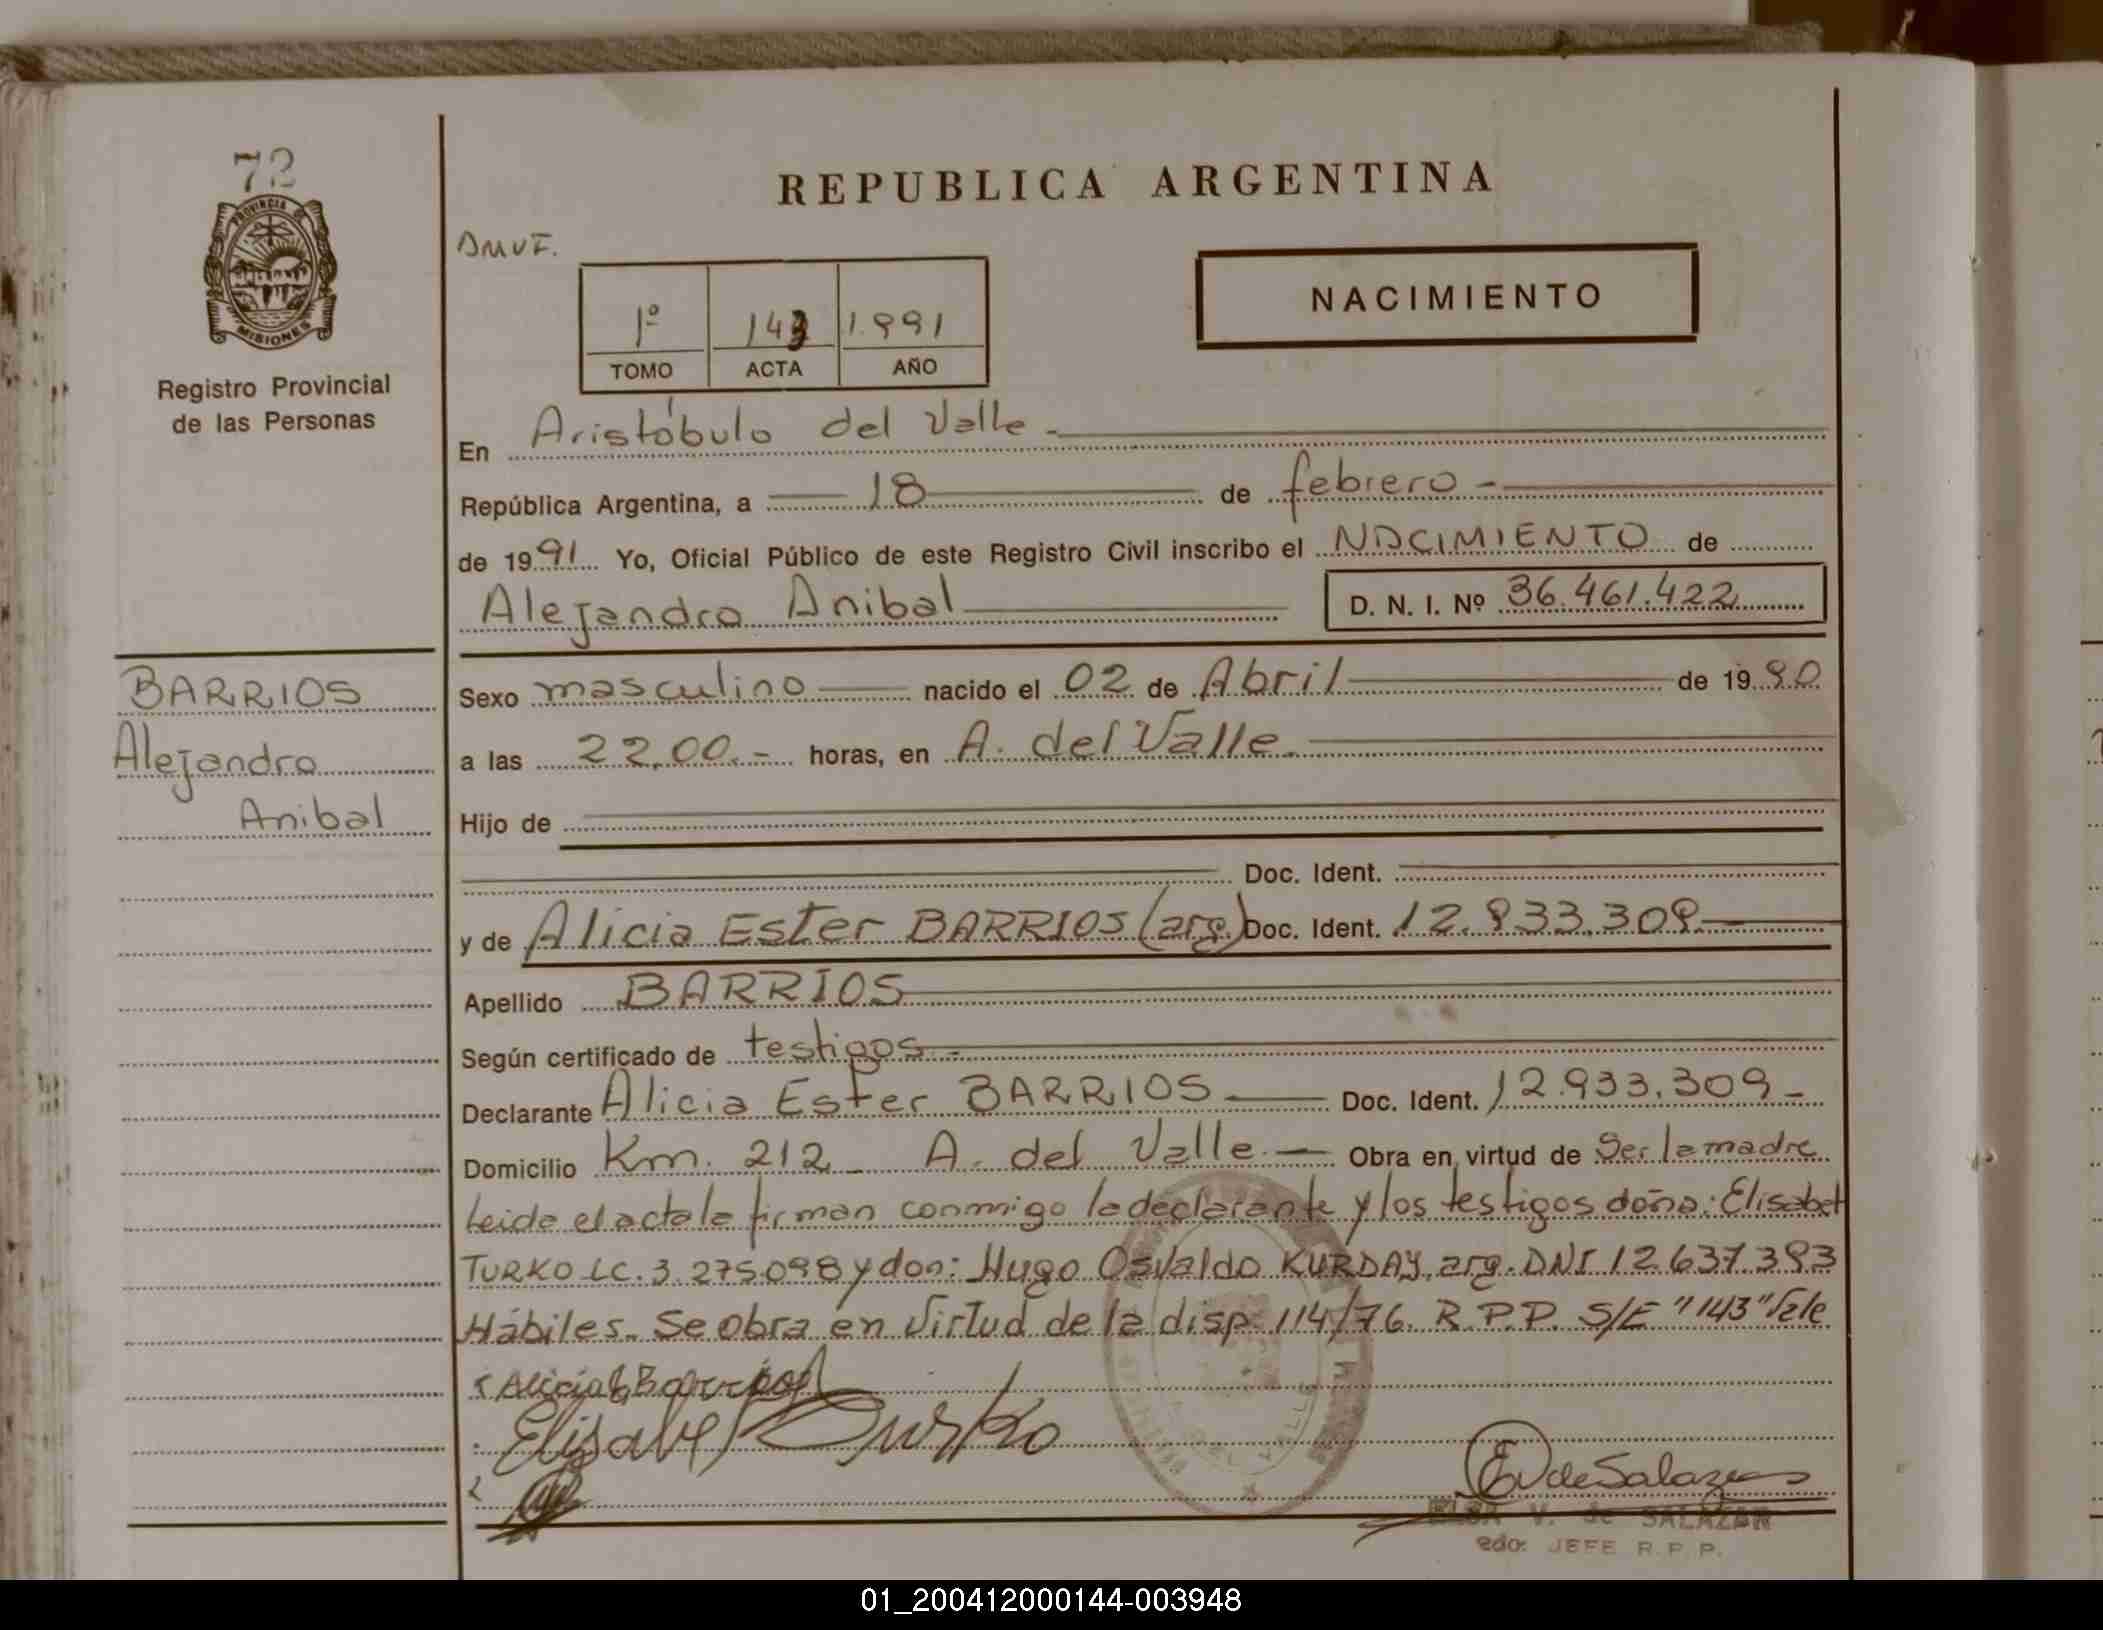 72
PROVINCIA DE
MISIONES
Registro Provincial
de las Personas
REPUBLICA ARGENTINA
NACIMIENTO
1º 143 1.991
TOMO ACTA AÑO
En Aristóbulo del Valle.-
República Argentina, a 18 de febrero -
de 1991 Yo, Oficial Público de este Registro Civil inscribo el NACIMIENTO de
Alejandro Anibal D. N. I. Nº 36.461.422
BARRIOS
Alejandro
Anibal
Sexo masculino nacido el 02 de Abril de 1990
a las 22,00.- horas, en A. del Valle.
Hijo de
Doc. Ident.
y de Alicia Ester BARRIOS (arg.) Doc. Ident. 12.933.309
Apellido BARRIOS
Según certificado de testigos.-
Declarante Alicia Ester BARRIOS Doc. Ident. 12.933.309-
Domicilio Km. 212 A. del Valle.- Obra en virtud de Ser la madre
Leida el acta la firman conmigo la declarante y los testigos doña: Elisabet
TURKO LC. 3.275.098 y don: Hugo Osvaldo KURDAY, arg. DNI 12.637.393
Hábiles. Se obra en Virtud de la disp. 114/76. R.P.P. S/E "143" Vale
Alicia E, Barrios
Elisabet Turko
E V de Salazar
ELSA V. de SALAZAR
JEFE R.P.P.
01_200412000144-003948